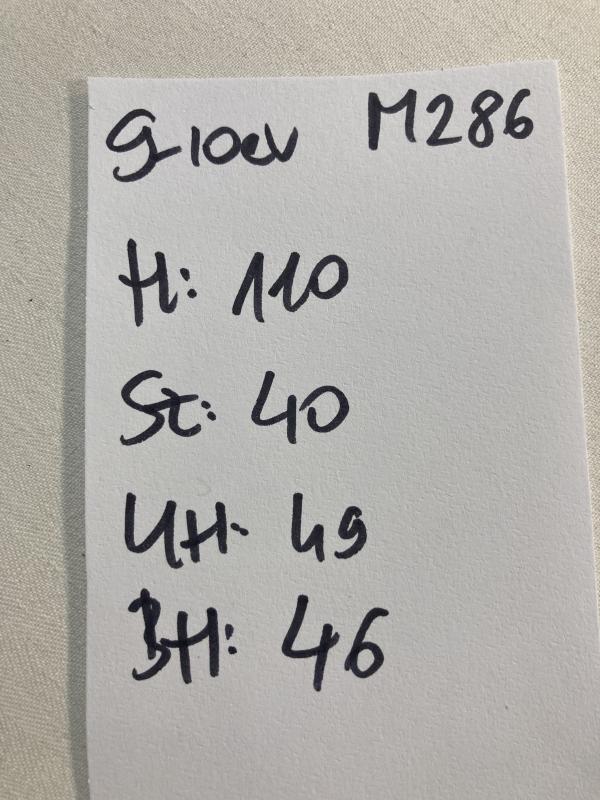 M286
H: 110
St: 40
UH: 49
BH: 46